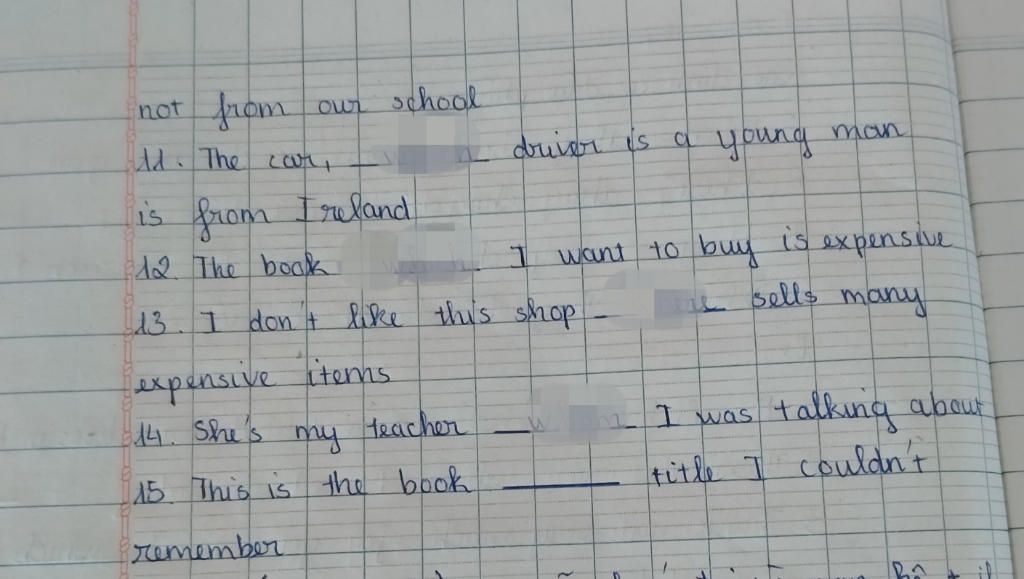 not from our school
11. The car, driver is a young man
is from Ireland
12. The book I want to buy is expensive
13. I don't like this shop sells many
expensive items
14. She's my teacher I was talking about
15. This is the book ______ title I couldn't
remember